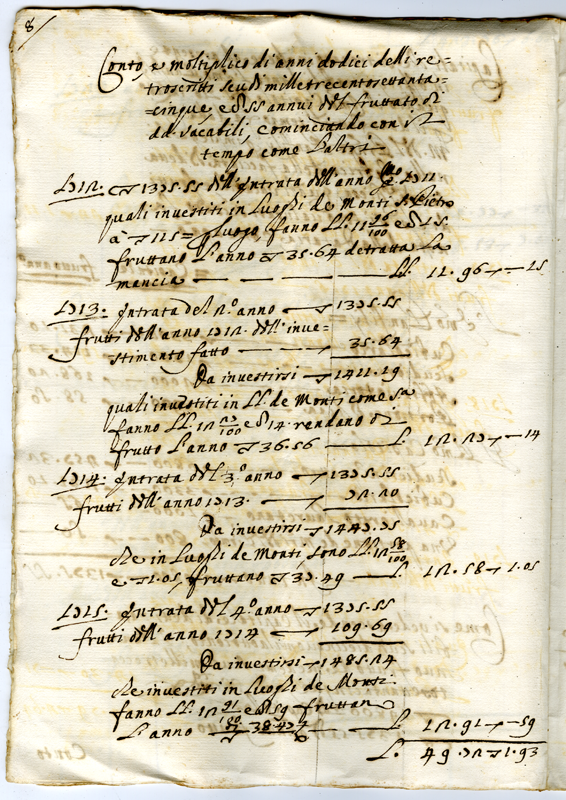 8
Conto, e moltiplico di anni dodici delli re=
troscritti scudi milletrecentosettanta=
=cinque, e 55 annui del fruttato di
da vacabili, cominciando con il
tempo come l'altri
1712. ▽ 1375.55 dell'Intrata dell'anno
quali investiti in Luoghi de Monti S. Pietro
à ▽ 115 = luogo, fanno LL. 11 96/100 e 15.
fruttano l'anno ▽ 35.64 detratta la
mancia — — — — LL. 11. 96 ▽ — 15
1713. Intrata del 2.º anno — ▽ 1375.55
frutti dell'anno 1712. dell'inve=
stimento fatto — 35.64
Da investirsi — ▽ 1411.19
quali investiti in LL. de Monti come sª
fanno LL. 12 27/100 e 14. rendano di
frutto l'anno ▽ 36.56 — L. 12. 27 ▽ — 14
1714. Intrata del 3.º anno — ▽ 1375.55
frutti dell'anno 1713. — 72.20
Da investirsi ▽ 1447.75
che in Luoghi de Monti, sono LL. 12 58/100
e ▽ 1.05, fruttano ▽ 37.49 — L. 12. 58 ▽ 1.05
1715. Intrata del 4.º anno — ▽ 1375.55
frutti dell'anno 1714 — 109.69
Da investirsi ▽ 1485.24
che investiti in Luoghi de Monti
fanno LL. 12 91/100 e 59 fruttan
l'anno ▽ 38.47 — L. 12. 91 ▽ — 59
L. 49. 72 ▽ 1.93